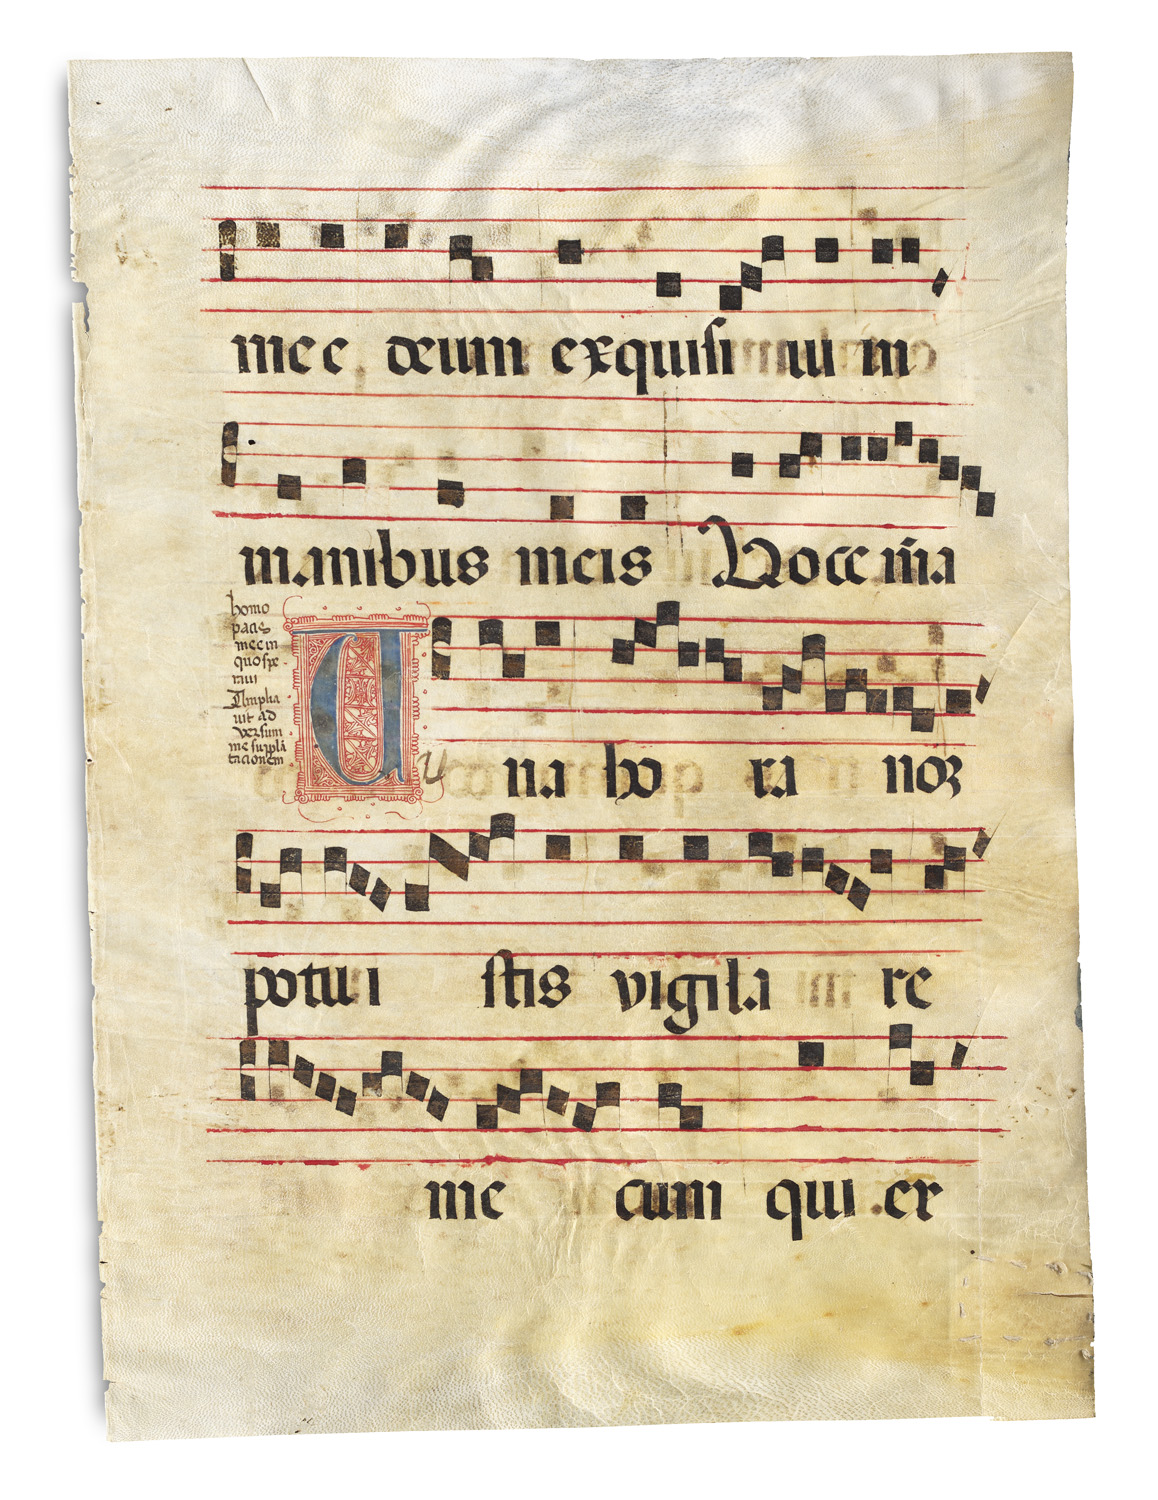 mee deum exquisi uu m
manibus meis Nocte m̃a
homo
pacis
mee in
quo spe
raui
Amplia
uit ad
versum
me supplā
tacionem
U na ho ra nō
potui stis vigila re
me cum qui .er